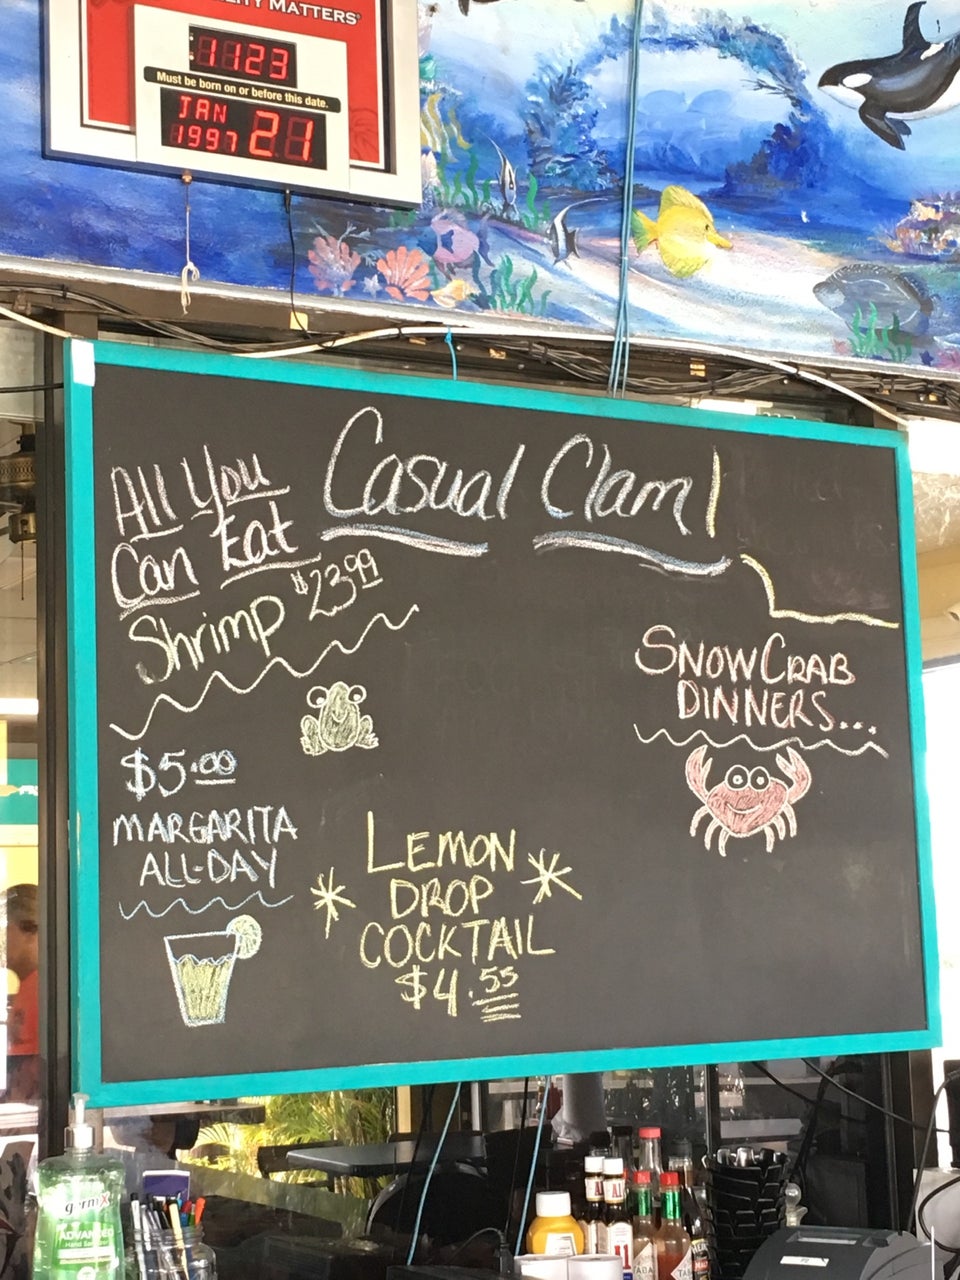 LITY MATTERS
1123
Must be born on or before this date.
JAN
1997 21
Casual Clam!
All You
Can Eat
Shrimp $23.99
SNOWCRAB
DINNERS...
$5.00
MARGARITA
ALL-DAY
LEMON
DROP
COCKTAIL
$4.55
germX
ADVANCED
Hand Sanitizer
A1